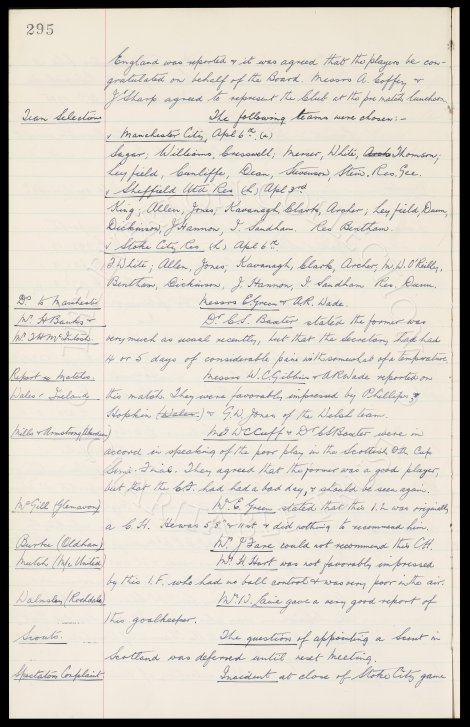 295
England was reported & it was agreed that the players be con-
gratulated on behalf of the Board. Messrs A. Coffey &
J. Sharp agreed to represent the Club at the pre match luncheon.
Team Selections The following teams were chosen:-
v Manchester City, Apl 6th. (a)
Sagar; Williams, Cresswell; Mercer, White, Thomson;
Leyfield, Cunliffe, Dean, Stevenson, Stein. Res. Gee.
v Sheffield Utd Res (h), Apl 3rd
King; Allen, Jones; Kavanagh, Clark, Archer; Leyfield, Dunn,
Dickinson, J. Hannon, I. Sandham. Res Bentham.
v Stoke City Res. (h). Apl 6th.
F. White; Allen, Jones; Kavanagh, Clark, Archer; M.W. O'Reilly,
Bentham, Dickinson, J. Hannon, I. Sandham. Res. Dunn.
Do. to Manchester Messrs E. Green & A.R. Wade.
Mr. H. Banks & Dr. C.S. Baxter stated the former was
Mr T.H. McIntosh. very much as usual recently, but that the Secretary had had
4 or 5 days of considerable pain with somewhat of a temperature
Report re Matches. Messrs W.C. Gibbins & A.R. Wade reported on
Wales v Ireland. this match. They were favorably impressed by Phillips &
Hopkin (Wales) & G.W. Jones of the Welsh team.
Mills & Armstrong (Aberdeen) Mr W.C. Cuff & Dr C.S. Baxter were in
accord in speaking of the poor play in the Scottish Cup
Semi-Final. They agreed that the former was a good player,
but that the C.F. had had a bad day, & should be seen again.
McGill (Glenavon) Mr. E. Green stated that this I.L. was originally
a C.H. He was 5'8" & 11st. & did nothing to recommend him.
Burke (Oldham) Mr. J. Fare could not recommend this C.H.
Mutch (M/c United) Mr. H. Hart was not favorably impressed
by this I.F. who had no ball control & was very poor in the air.
Walmsley (Rochdale) Mr. W. gave a very good report of
this goalkeeper.
Scouts. The question of appointing a Scout in
Scotland was deferred until next meeting.
Spectators Complaint Incident at close of Stoke City game